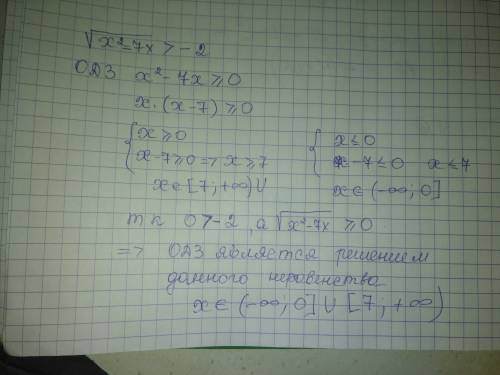 √x²-7x > -2
ОДЗ x² - 7x ⩾ 0
x·(x-7) ⩾ 0
{ x ⩾ 0
x-7 ⩾ 0 => x ⩾ 7
x ∈ [7; +∞) ∪
{ x ≤ 0
x-7 ≤ 0 x ≤ 7
x ∈ (-∞; 0]
т к 0 > -2, а √x²-7x ⩾ 0
=> ОДЗ является решением
данного неравенства
x ∈ (-∞; 0] ∪ [7; +∞)